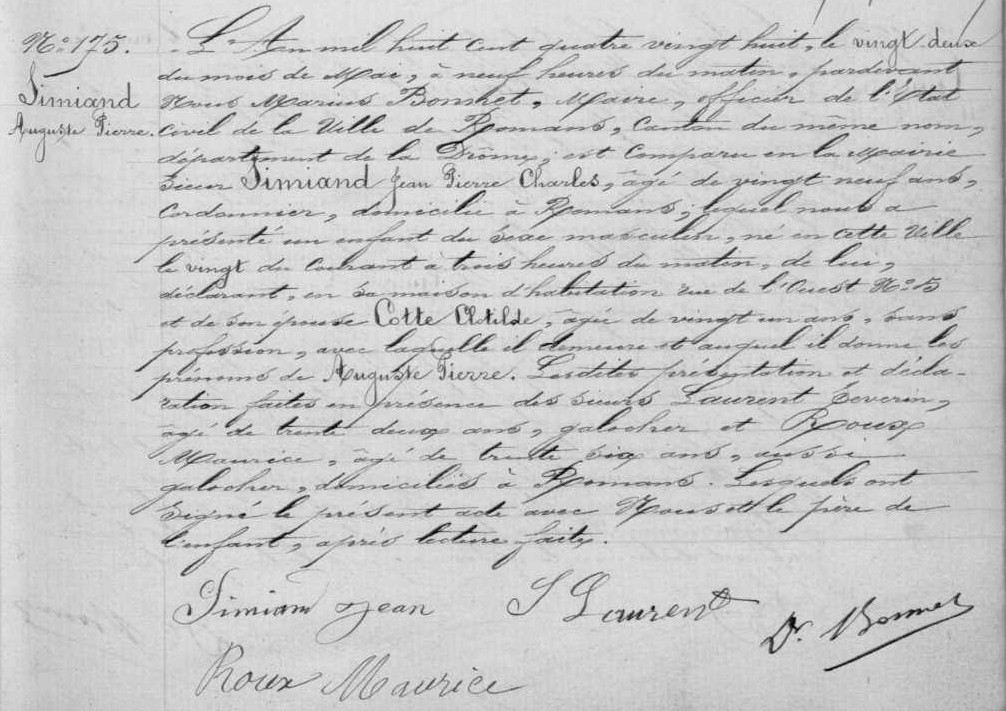 N.º 175.
Simiand
Auguste Pierre.
L'An mil huit cent quatre vingt huit, le vingt deux
du mois de Mai, à neuf heures du matin, pardevant
Nous Marius Bonnet, Maire, officier de l'État
civil de la Ville de Romans, Canton du même nom,
département de la Drôme, est Comparu en la Mairie
Sieur Simiand Jean Pierre Charles, âgé de vingt neuf ans,
Cordonnier, domicilié à Romans, lequel nous a
présenté un enfant du sexe masculin, né en cette Ville
le vingt du Courant à trois heures du matin, de lui,
déclarant, en sa maison d'habitation rue de l'Ouest N.º 5
et de son épouse Cotte Clotilde, âgée de vingt un ans, sans
profession, avec laquelle il demeure et auquel il donne les
prénoms de Auguste Pierre. Lesdites présentation et décla-
ration faites en présence des sieurs Laurent Severin,
âgé de trente deux ans, galocher et Roux
Maurice, âgé de trente six ans, aussi
galocher, domiciliés à Romans. Lesquels ont
signé le présent acte avec Nous et le père de
l'enfant, après lecture faite.
Simiand Jean
S Laurent
Dr. Bonnet
Roux Maurice